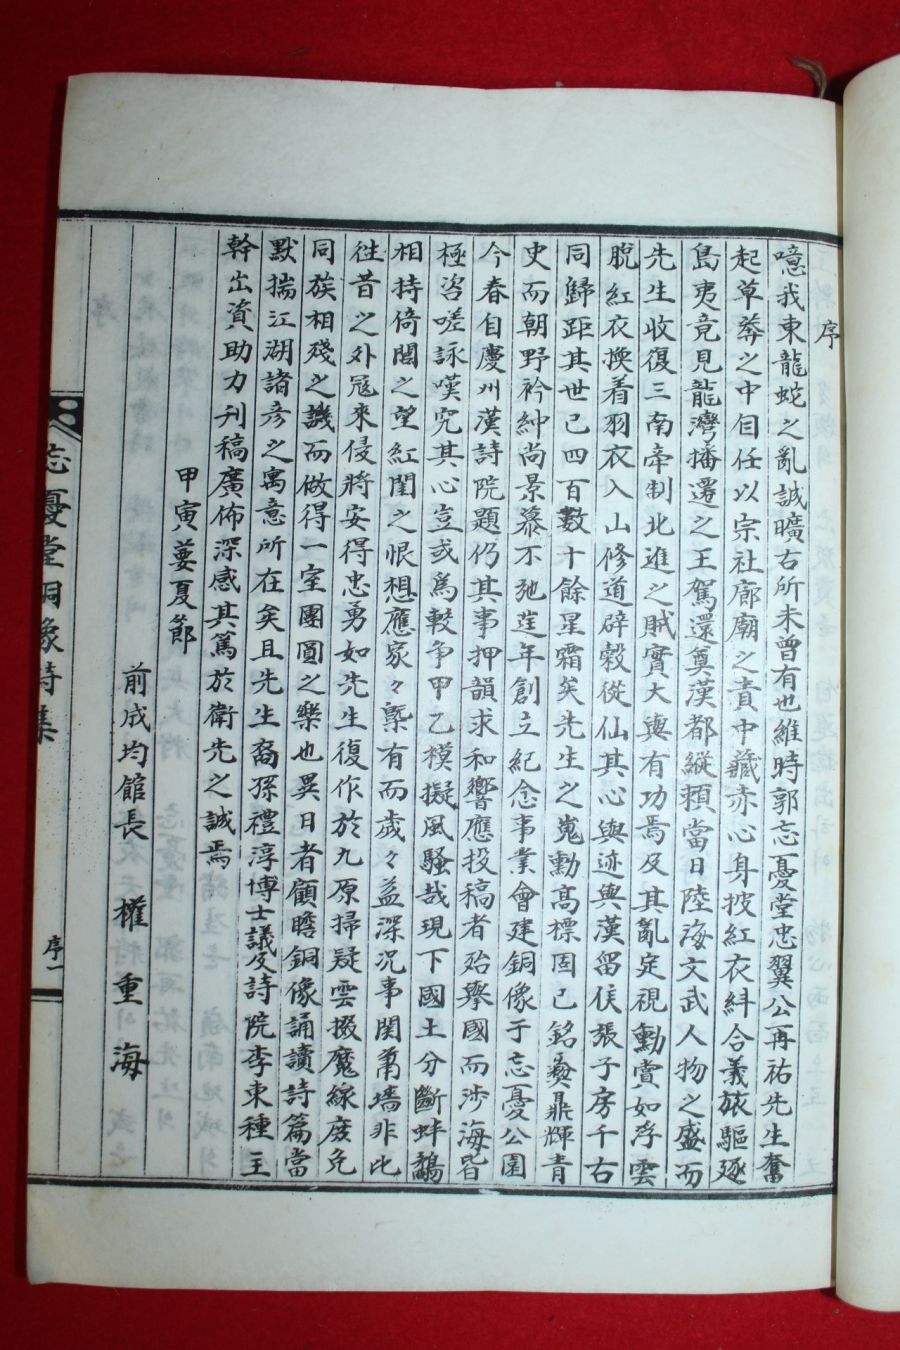 序
噫我東龍蛇之亂誠曠古所未曾有也維時郭忘憂堂忠翼公再祐先生奮
起草莽之中自任以宗社廊廟之責中藏赤心身披紅衣糾合義旅驅逐
島夷竟見龍灣播遷之王駕還奠漢都縱賴當日陸海文武人物之盛而
先生收復三南牽制北進之賊實大與有功焉及其亂定視勳賞如浮雲
脫紅衣換着羽衣入山修道辟穀從仙其心與迹與漢留侯張子房千古
同歸距其世已四百數十餘星霜矣先生之嵬勳高標固已銘彝鼎輝青
史而朝野衿紳尚景慕不弛莛年創立紀念事業會建銅像于忘憂公園
今春自慶州漢詩院題仍其事押韻求和響應投稿者殆擧國而涉海皆
極咨嗟詠嘆究其心豈或爲較爭甲乙模擬風騷哉現下國土分斷蚌鷸
相持倚閭之望紅閨之恨想應家々槩有而歲々益深况事関蕭墻非比
徃昔之外冦來侵將安得忠勇如先生復作於九原掃疑雲掇魔線庶免
同族相殘之譏而做得一室團圓之樂也異日者顧瞻銅像誦讀詩篇當
默揣江湖諸彦之寓意所在矣且先生裔孫禮淳博士議及詩院李東種主
幹出資助力刊稿廣佈深感其篤於衛先之誠焉
甲寅蔞夏節
前成均館長 權重海
忘憂堂銅像詩集
序一